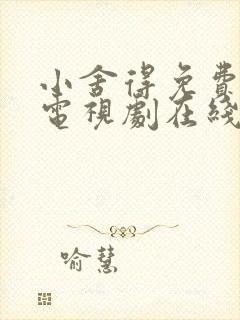 小舍得免費
電視劇在綫
喻慧